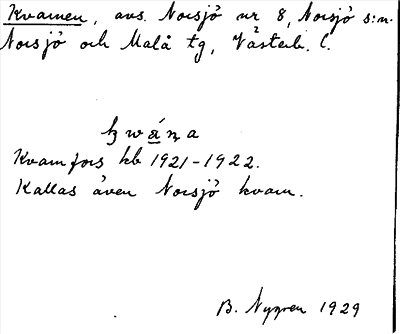 Kvarnen, avs. Norsjö nr 8, Norsjö s:n.
Norsjö och Malå tg, Västerb. l.
Kvarnfors kb 1921-1922.
Kallas även Norsjö kvarn.
B. Nygren 1929